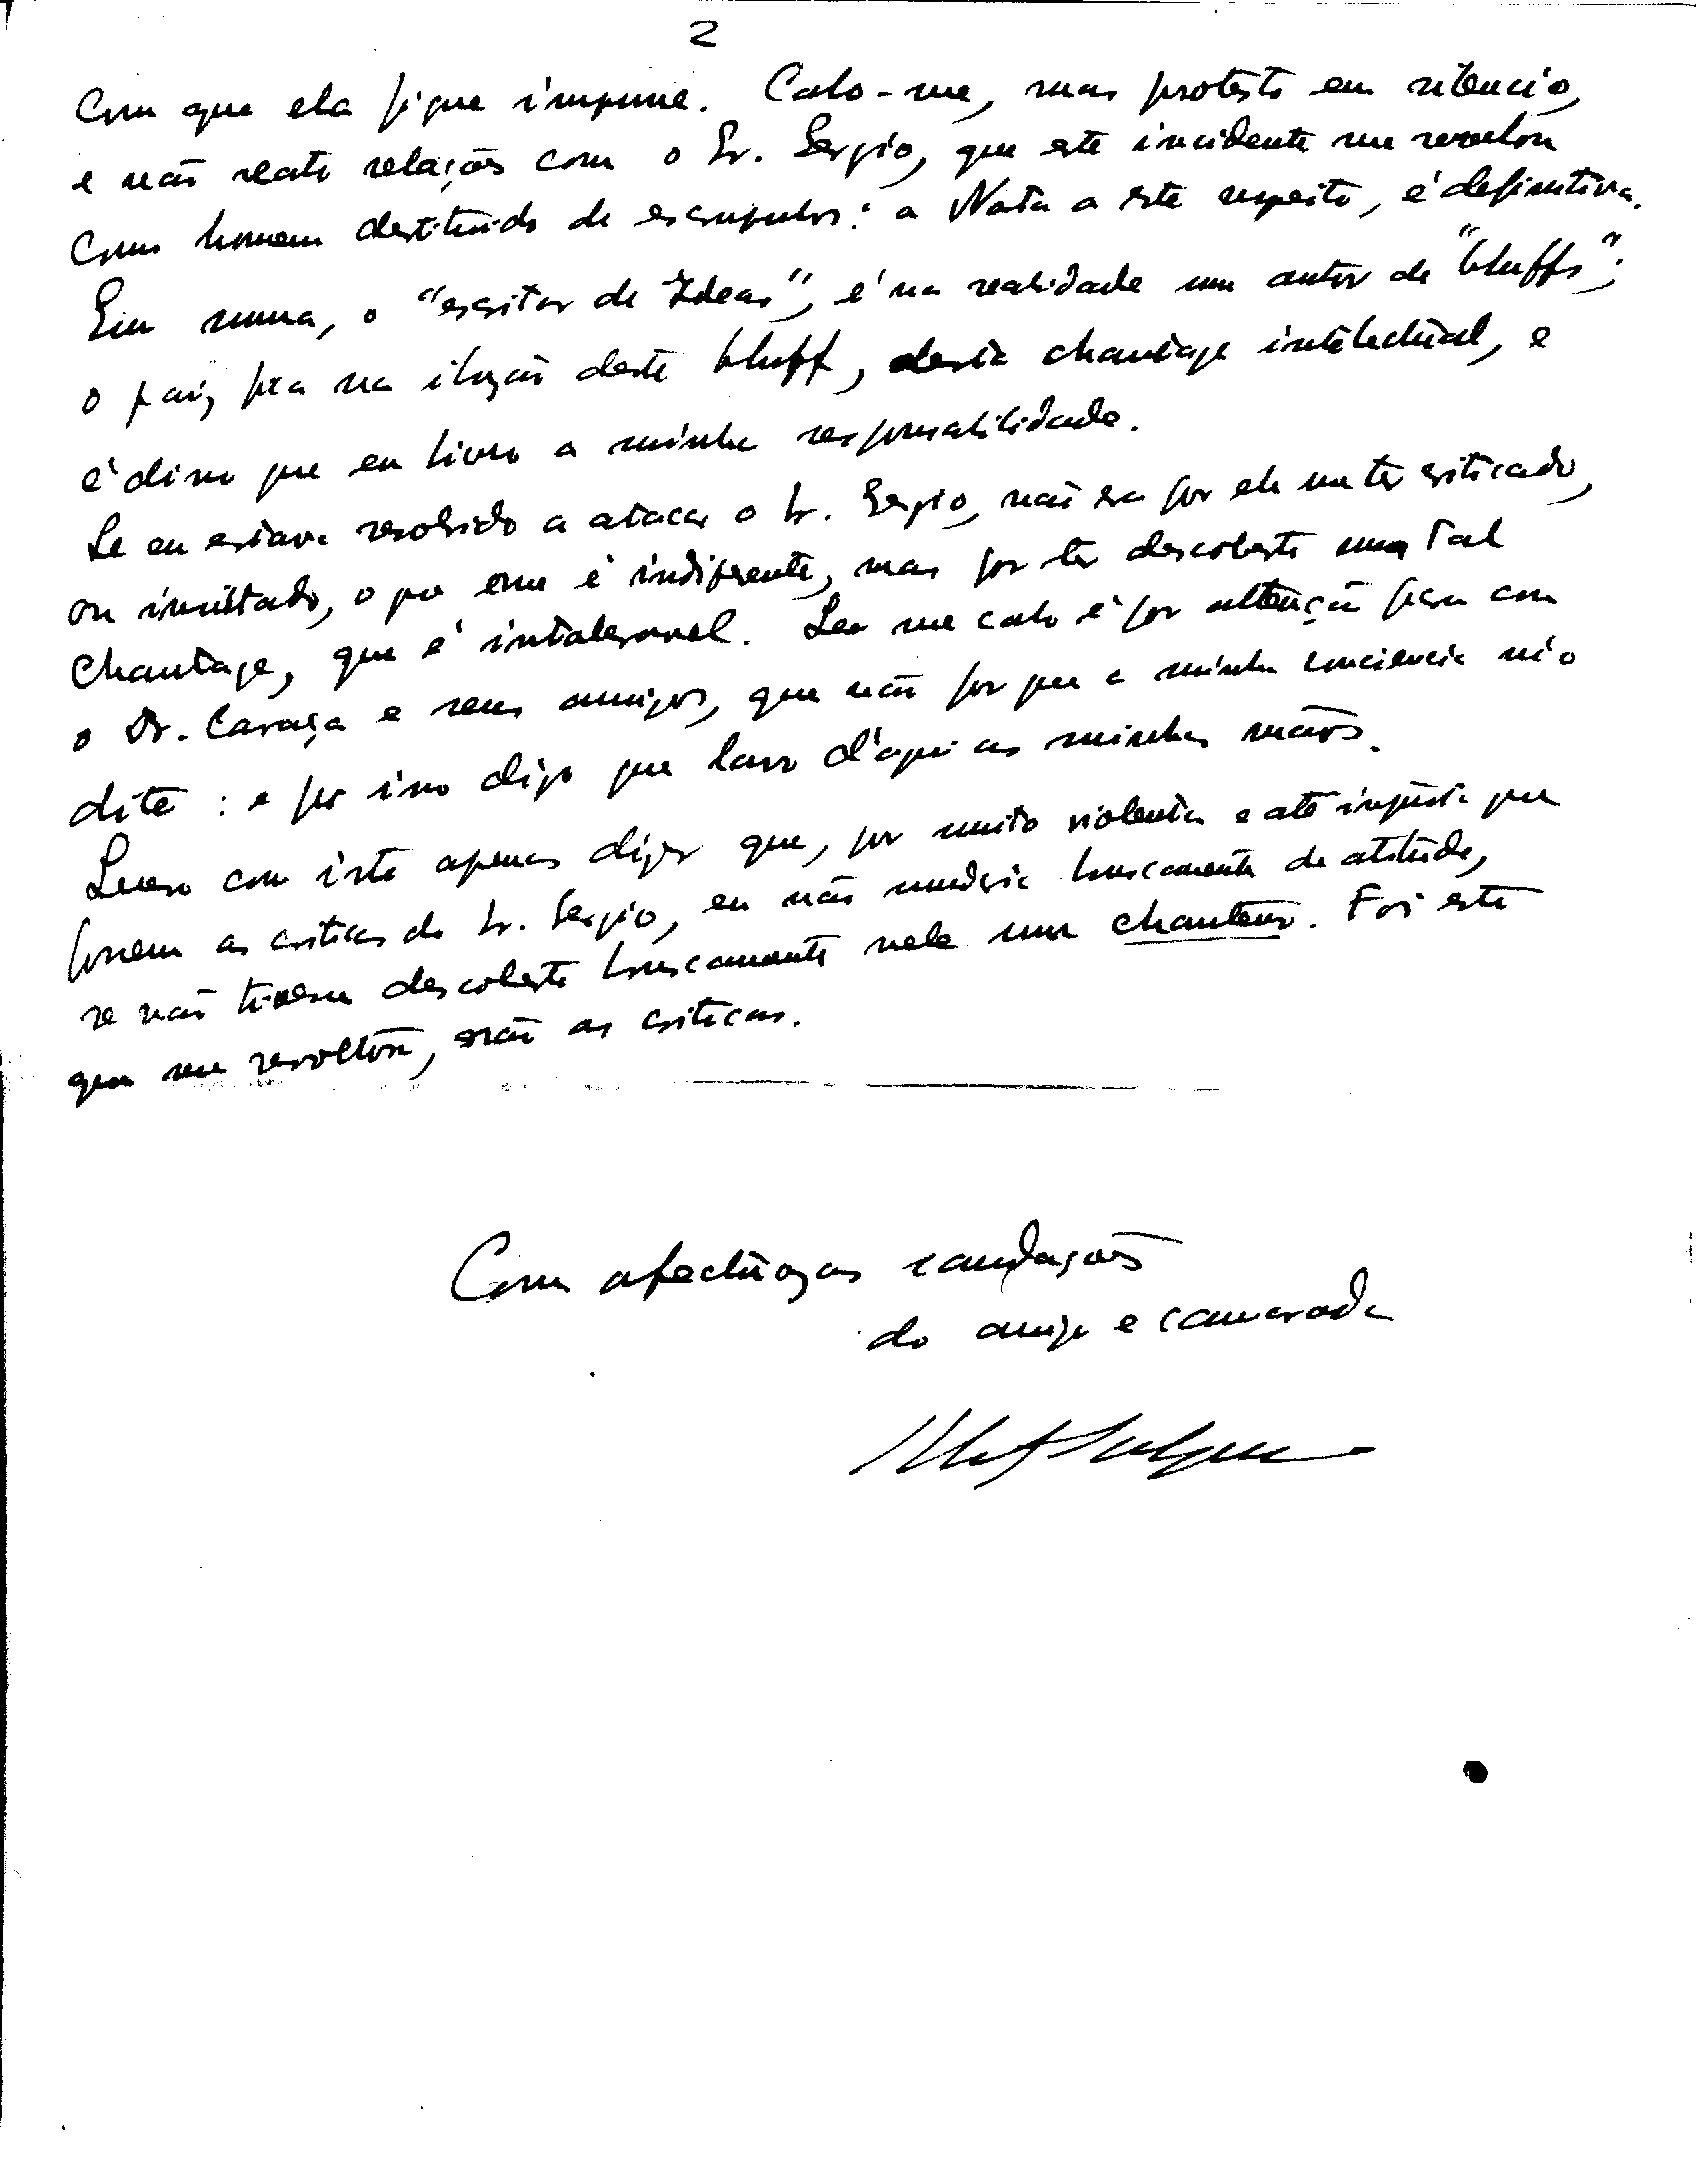 2
Com que ela fique impune. Calo-me, mas protesto em silencio,
e não reato relações com o Sr. Sergio, que este incidente me revelou
como homem destituido de escrupulos: a Nota a este respeito, é definitiva.
Em suma, o "escritor de Ideas", é na realidade um autor de "bluffs";
o paiz fica na iluzão deste bluff, desta chantage intelectual, e
é disso que eu livro a minha responsabilidade.
Se eu estava resolvido a atacar o Sr. Sergio, não era por ele me ter criticado,
ou insultado, o que me é indiferente, mas por ter descoberto uma tal
chantage, que é intoleravel. Se me calo é por attenção para com
o Dr. Caraça e seus amigos, que não por que a minha consciencia m'o
dite: e por isso digo que lavo d'aqui as minhas mãos.
Quero com isto apenas dizer que, por muito violentas e até injustas que
fossem as criticas do Sr. Sergio, eu não mudaria bruscamente de atitude,
se não tivesse descoberto bruscamente nele um chanteur. Foi este
que me revoltou, não as criticas.
Com afectuozas saudações
do amigo e camarada